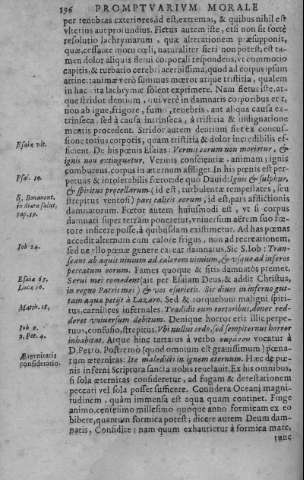 196 PROMPTVARIVM MORALE
per tenebras exteriores, id est, extremas, & quibus nihil est
vlterius aut profundius. Fletus autem iste, etsi non sit forte
resolutio lachrymarum, quæ alterationem præsupponit,
quæ, cessante motu cœli, naturaliter fieri non potest, est ta-
men dolor aliquis flenti corporali respondens, vt commotio
capitis, & turbatio cerebri acerbissima, quod ad corpus ipsum
attinet: animæ verò summus mœror atque tristitia, qualem
in hac vita lachrymæ solent exprimere. Nam fletus iste, at-
que stridor dentium, vti verè in damnatis corporibus erit,
non ab igne, frigore, fumi, tenebris, aut aliqua causa ex-
trinseca, sed à causa intrinseca, à tristitia & indignatione
mentis procedent. Stridor autem dentium fiet ex concus-
sione totius corporis, quam tristitia & dolor incredibilis ef-
ficient. De his pœnis Elaias: Vermis eorum non morietur, &
ignis non extinguetur. Vermis conscientiæ, animam; ignis
comburens, corpus in æternum affliget. In his pœnis est per-
petuus & intolerabilis fœtor de quo Dauid: Ignis & sulphur,
& spiritus procellarum (id est, turbulentæ tempestates, seu
strepitus ventosi) pars calicis eorum, id est, pars afflictionis
damnatorum. Fœtor autem huiusmodi est, vt si corpus
damnati super terram poneretur, vniuersum aërem suo fœ-
tore inficere posse, à quibusdam existimetur. Ad has pœnas
accedit alternatim cum calore frigus, non ad recreationem,
sed vt nullo pœnæ genere careat damnatus. Sic S. Iob: Trans-
seant ab aquis niuium ad calorem nimium, & vsque ad inferos
peccatum eorum. Fames quoque & sitis damnatos premet.
Serui mei comedent (ait per Esaiam Deus & addit Christus,
in regno Patris mei) & vos esurietis. Sic diues in inferno gut-
tam aquæ petijt à Lazaro. Sed & torquebunt maligni spiri-
tus, carnifices infernales. Tradidit eum tortoribus, donec red-
deret vniuersum debitum. Denique horror erit ille perpe-
tuus, confusio, strepitus. Vbi nullus ordo, sed sempiternus horror
inhabitat. Atque hinc tartarus à verbo vocatur à
D. Petro. Postremo (quod omnium est grauissimum) pœna-
rum æternitas: Ite maledicti in ignem æternum. Hæc de pœ-
nis inferni Scriptura sancta nobis reuelauit. Ex his omnibus,
si sola æternitas consideretur, ad fugam & detestationem
peccati vel sola posset sufficere. Considera Oceani magni-
tudinem, quàm immensa est aqua quam continet. Finge
animo, centesimo millesimo quoque anno formicam ex eo
bibere, quantum formica potest; dicere autem Deum dam-
natis, Confidite: nam quum exhauserit à formica mare,
tunc
Esaiæ vlt.
Psal. 10.
S. Bonauent.
in diæta salut.
cap. 50.
Iob 24.
Esaiæ 65.
Luc. 16.
Matth. 18.
Iob 10.
2. Pet. 2.
Æternitatis
consideratio.